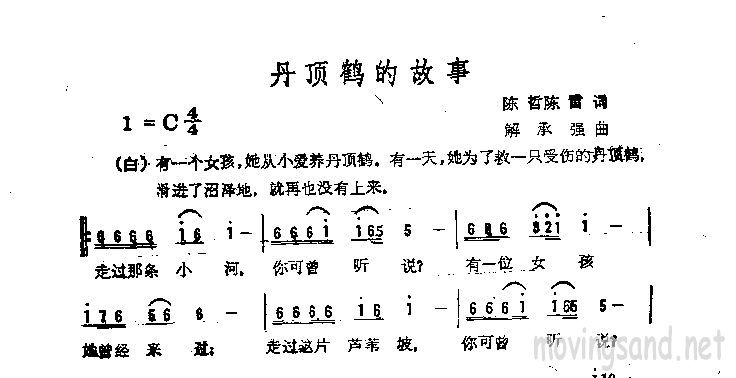 丹顶鹤的故事
陈哲陈雷词
1=C 4/4
解承强曲
(白)有一个女孩,她从小爱养丹顶鹤。有一天,她为了救一只受伤的丹顶鹤,
滑进了沼泽地,就再也没有上来。
6 6 6 6 i̇ 6 i̇ – | 6 6 6 i̇ i̇ 6 5 5 – | 6 6 6 3̇ 2̇ i̇ i̇ – |
走过那条 小 河, 你可曾 听 说? 有一位 女 孩
i̇ 7 6 5 6 6 – | 6 6 6 6 i̇ 6 i̇ – | 6 6 6 i̇ i̇ 6 5 5 – |
她曾经 来 过; 走过这片 芦苇 坡, 你可曾 听 说?
movingsand.net